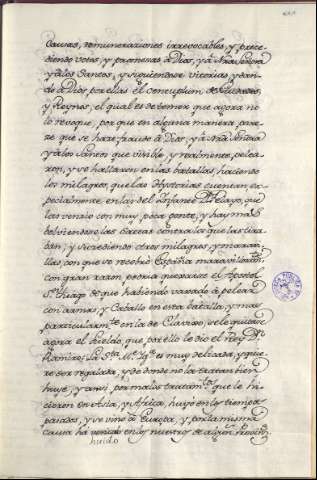 Causas, remuneraciones irrevocables, y, prece-
diendo votos, y pagmesas à Dios, y à Nra Señora
y à los Santos, y siguiendose vitorias, y dan-
do à Dios, por ellas el
y Reynos, el qual es de temer que agora no
lo revoque, por que en alguna manera, pare-
ze que se haze fraude à Dios, y à Nra Señora
y à los Santos que visible, y realmente, pelea-
ron, y se hallaron en las batallas, haciendo
los milagros, que las Hystorias cuentan, es-
pecialmente, en la del Infante D. Pelayo, que
las vencio con muy poca gente, y hay mas
de volviendose las saetas contra los que las tira-
ban; y sucediendo otros milagros, y maravi-
llas, con que se recobrò España
con gran razon, podria quexarse el Apostol
S.tiago de que habiendo vaxado à pelear
con armas, y Caballo en esta batalla, y mas
particularm.te en la de Clavixo, se le quitase
agora el Sueldo, que por ello le dio el Rey D.n
Ramiro; La S.ta M.e Ig.a es muy delicada, y quie-
re ser regalada, y de donde no la tratan bien
huye, y assi, por malos tratam.tos que le hi-
cieron en Asia, y Africa, huyò en los tiempos
pasados, y se vino à Europa, y, por la misma
causa ha venido en los nuestros de algun
huido